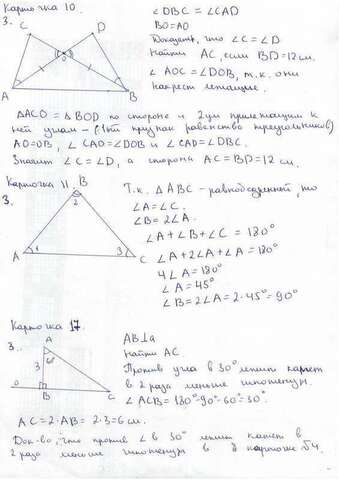 Карточка 10.
3.
C D
O
A B
∠DBC = ∠CAD
BO=AO
Доказать, что ∠C = ∠D.
Найти AC, если BD=12 см.
∠AOC = ∠DOB, т.к. они
накрест лежащие.
△ACO = △BOD по стороне и 2ум прилежащим к
ней углам – (1ый признак равенства треугольников)
AO=OB, ∠CAO=∠DOB и ∠CAD=∠DBC.
Значит ∠C=∠D, а сторона AC=BD=12 см.
Карточка 11.
3.
B
2
A 1 3 C
Т.к. △ABC – равнобедренный, то
∠A=∠C.
∠B=2∠A.
∠A+∠B+∠C=180°
∠A+2∠A+∠A=180°
4∠A=180°
∠A=45°
∠B=2∠A=2·45°=90°
Карточка 17.
3.
A
60°
3
a B C
AB⊥a
Найти AC.
Против угла в 30° лежит катет
в 2 раза меньше гипотенузы.
∠ACB=180°-90°-60°=30°.
AC=2·AB=2·3=6 см.
Док-во, что против ∠ в 30° лежит катет в
2 раза меньше гипотенузы в карточке №4.